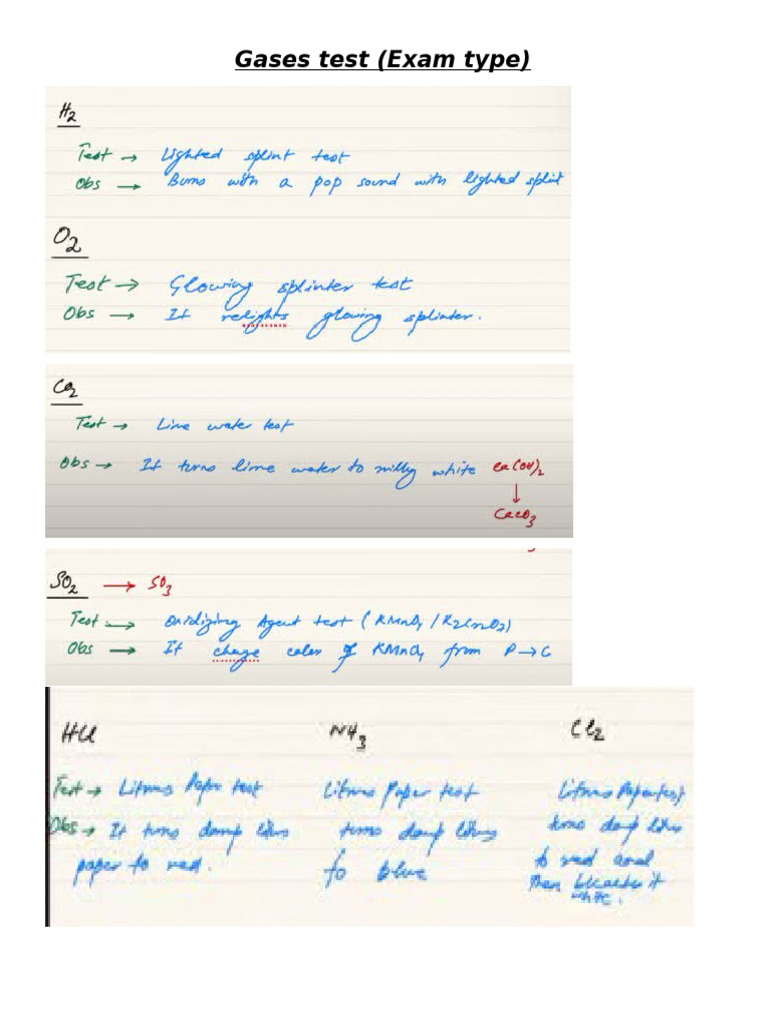 Gases test (Exam type)
H2
Test → Lighted splint test
Obs → Burns with a pop sound with lighted splint
O2
Test → Glowing splinter test
Obs → It relights glowing splinter.
CO2
Test → Lime water test
Obs → It turns lime water to milky white Ca(OH)2
↓
CaCO3
SO2 → SO3
Test → Oxidizing Agent test (KMnO4 / K2Cr2O7)
Obs → It change color of KMnO4 from P → C
HCl NH3 Cl2
Test → Litmus Paper test Litmus Paper test Litmus Paper test
Obs → It turns damp litmus turns damp litmus turns damp litmus
paper to red. to blue to red and
then bleaches it
white.